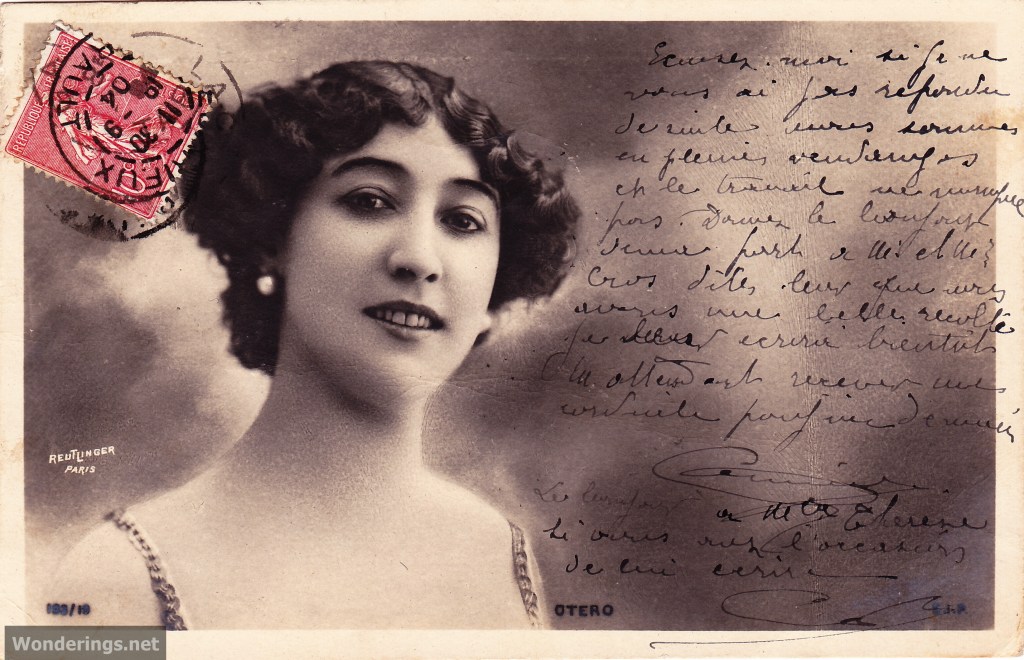 REPUBLIQUE FRANÇAISE
Ecusez moi si je ne
vous ai pas repondu
de suite nous sommes
en pleines vendanges
et le travail ne manque
pas. Donnez le bonjour
de ma part a Mr et Mme
Cros dites leur que nous
avons une belle recolte
je leur ecrirai bientôt
En attendant recevez mes
cordiale
Le bonjour a Mlle Therese
si vous avez l'occasion
de lui ecrire
REUTLINGER
PARIS
189/18
OTERO
E.J.P.
Wonderings.net